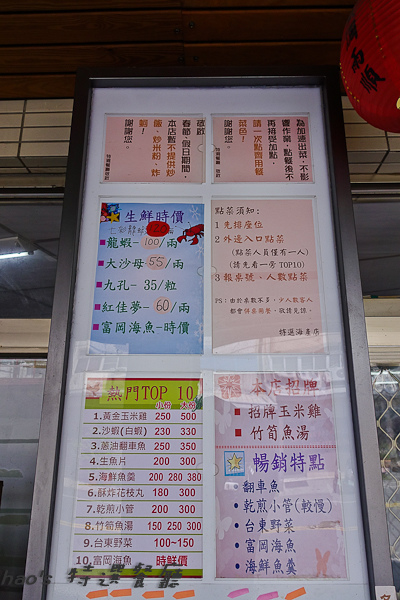 為加速出菜，不影
響作家，點餐後不
再接受加點，
請一次點齊用餐
菜色！
謝謝您。
特選餐廳 敬啟
敬啟
春節、假日期間，
本店暫不提供炒
飯、炒米粉、炸
粥！
謝謝您。
特選餐廳 敬啟
生鮮時價
龍蝦-100/兩
大沙母-55/兩
九孔-35/粒
紅佳夢-60/兩
富岡海魚-時價
點菜須知:
1 先排座位
2 外邊入口點菜
(點菜人員僅有一人)
(請先看一旁TOP10)
3 報桌號、人數點菜
PS:由於桌數不多，少人數客人
都會併桌用餐，敬請見諒。
特選海產店
熱門TOP 10
小份 大份
1.黃金玉米雞 250 500
2.沙蝦(白蝦) 230 330
3.蔥油翻車魚 250 350
4.生魚片 200 300
5.海鮮魚羹 200 280 380
6.酥炸花枝丸 180 300
7.乾煎小管 200 300
8.竹筍魚湯 150 250 300
9.台東野菜 100~150
10.富岡海魚 時鮮價
本店招牌
招牌玉米雞
竹筍魚湯
暢銷特點
翻車魚
乾煎小管(較慢)
台東野菜
富岡海魚
海鮮魚羹
hao's 特選餐廳